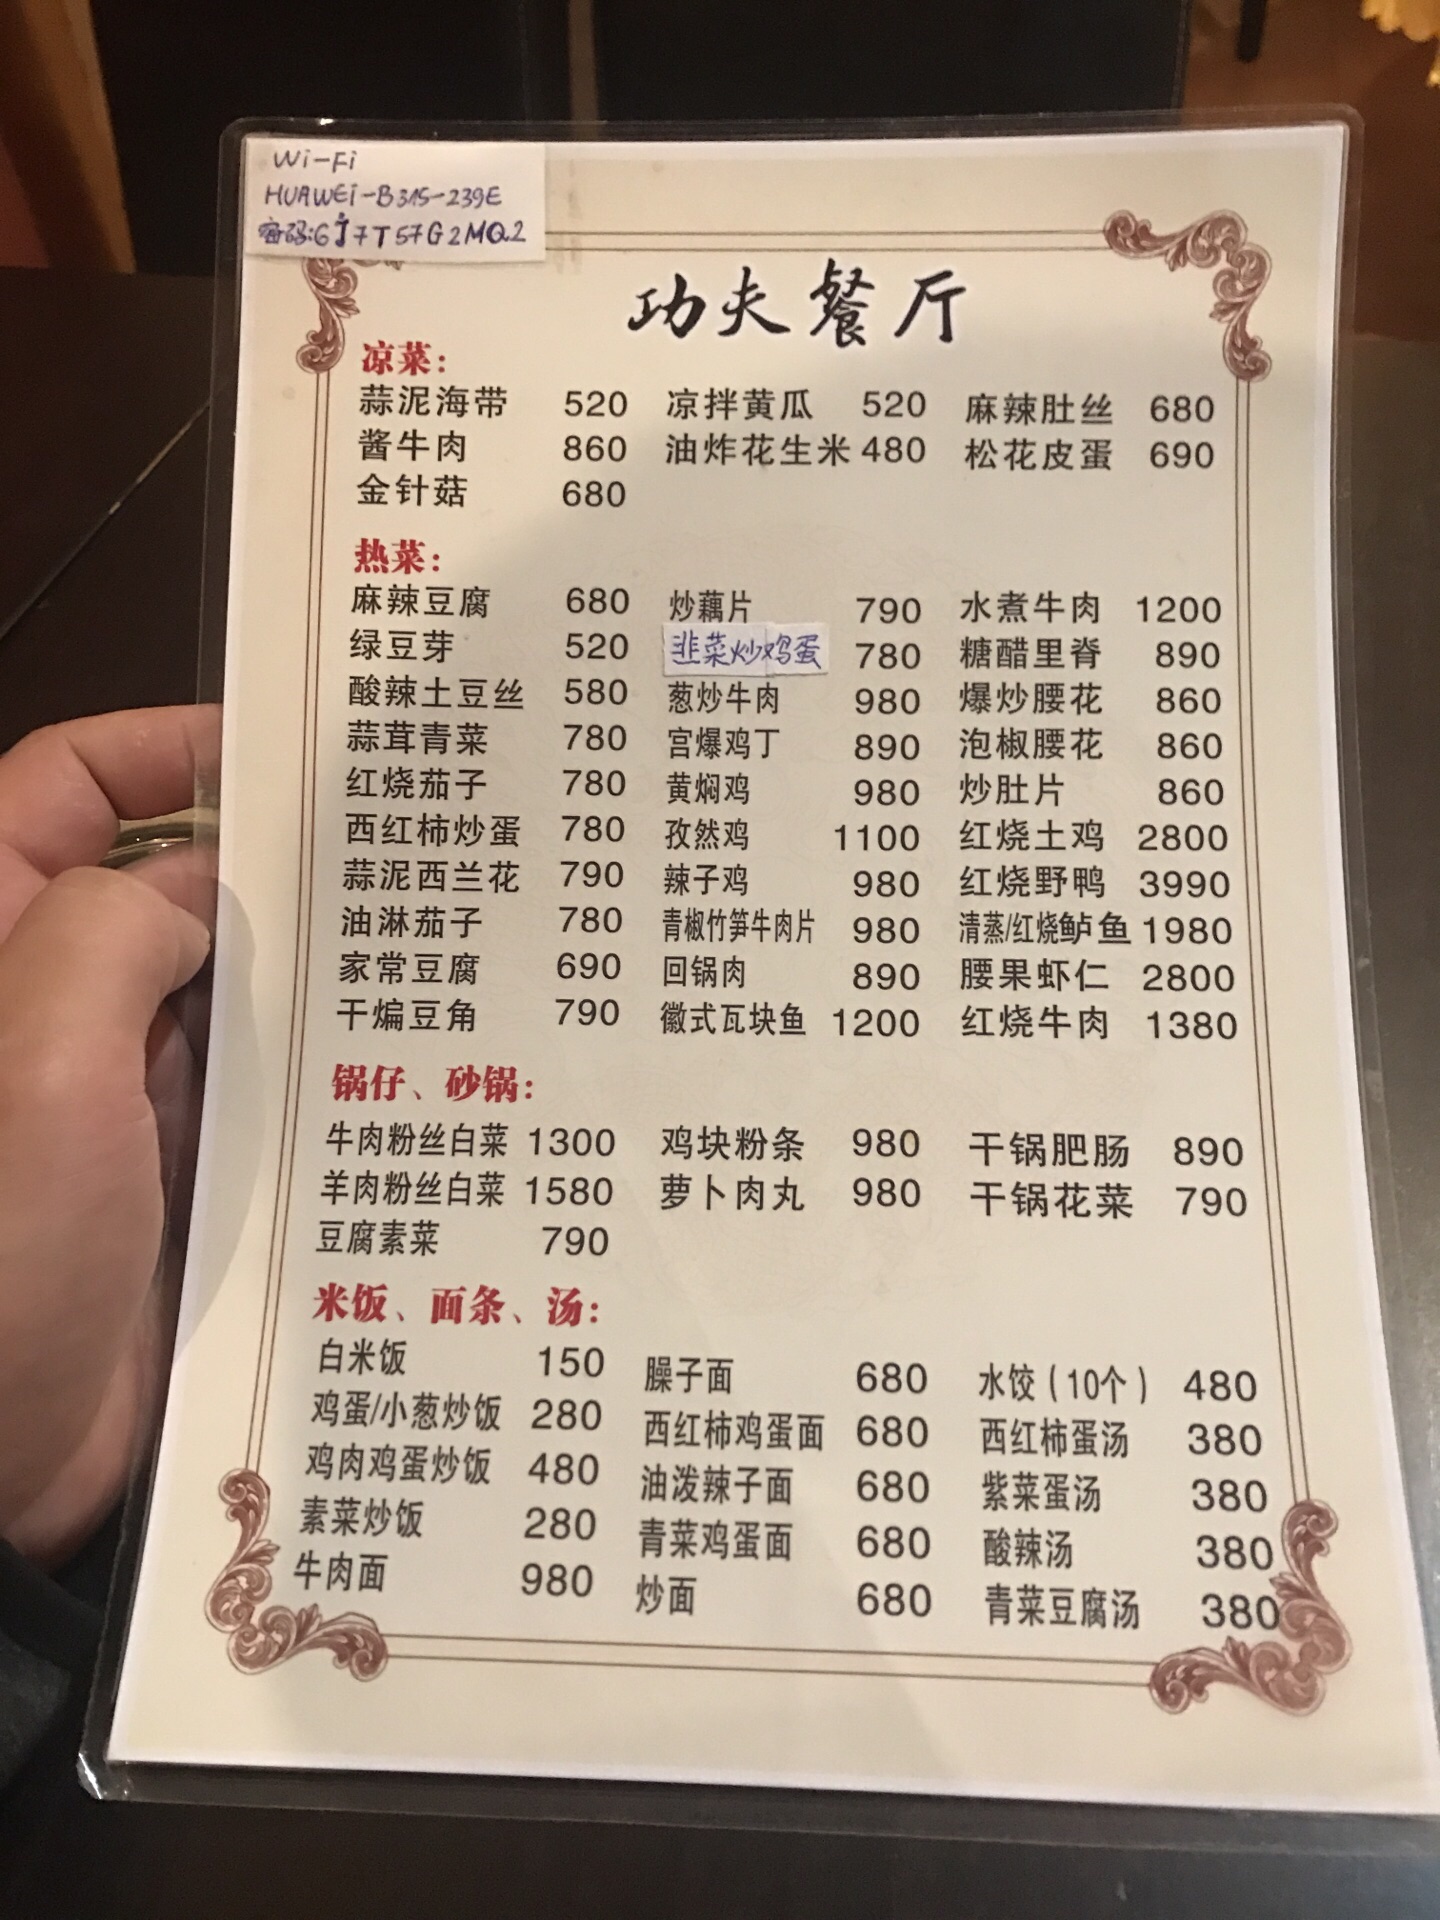 Wi-Fi
HUAWEi-B315-239E
密码:6J7T57G2MQ2
功夫餐厅
凉菜:
蒜泥海带 520 凉拌黄瓜 520 麻辣肚丝 680
酱牛肉 860 油炸花生米 480 松花皮蛋 690
金针菇 680
热菜:
麻辣豆腐 680 炒藕片 790 水煮牛肉 1200
绿豆芽 520 韭菜炒鸡蛋 780 糖醋里脊 890
酸辣土豆丝 580 葱炒牛肉 980 爆炒腰花 860
蒜茸青菜 780 宫爆鸡丁 890 泡椒腰花 860
红烧茄子 780 黄焖鸡 980 炒肚片 860
西红柿炒蛋 780 孜然鸡 1100 红烧土鸡 2800
蒜泥西兰花 790 辣子鸡 980 红烧野鸭 3990
油淋茄子 780 青椒竹笋牛肉片 980 清蒸/红烧鲈鱼 1980
家常豆腐 690 回锅肉 890 腰果虾仁 2800
干煸豆角 790 徽式瓦块鱼 1200 红烧牛肉 1380
锅仔、砂锅:
牛肉粉丝白菜 1300 鸡块粉条 980 干锅肥肠 890
羊肉粉丝白菜 1580 萝卜肉丸 980 干锅花菜 790
豆腐素菜 790
米饭、面条、汤:
白米饭 150 臊子面 680 水饺(10个) 480
鸡蛋/小葱炒饭 280 西红柿鸡蛋面 680 西红柿蛋汤 380
鸡肉鸡蛋炒饭 480 油泼辣子面 680 紫菜蛋汤 380
素菜炒饭 280 青菜鸡蛋面 680 酸辣汤 380
牛肉面 980 炒面 680 青菜豆腐汤 380